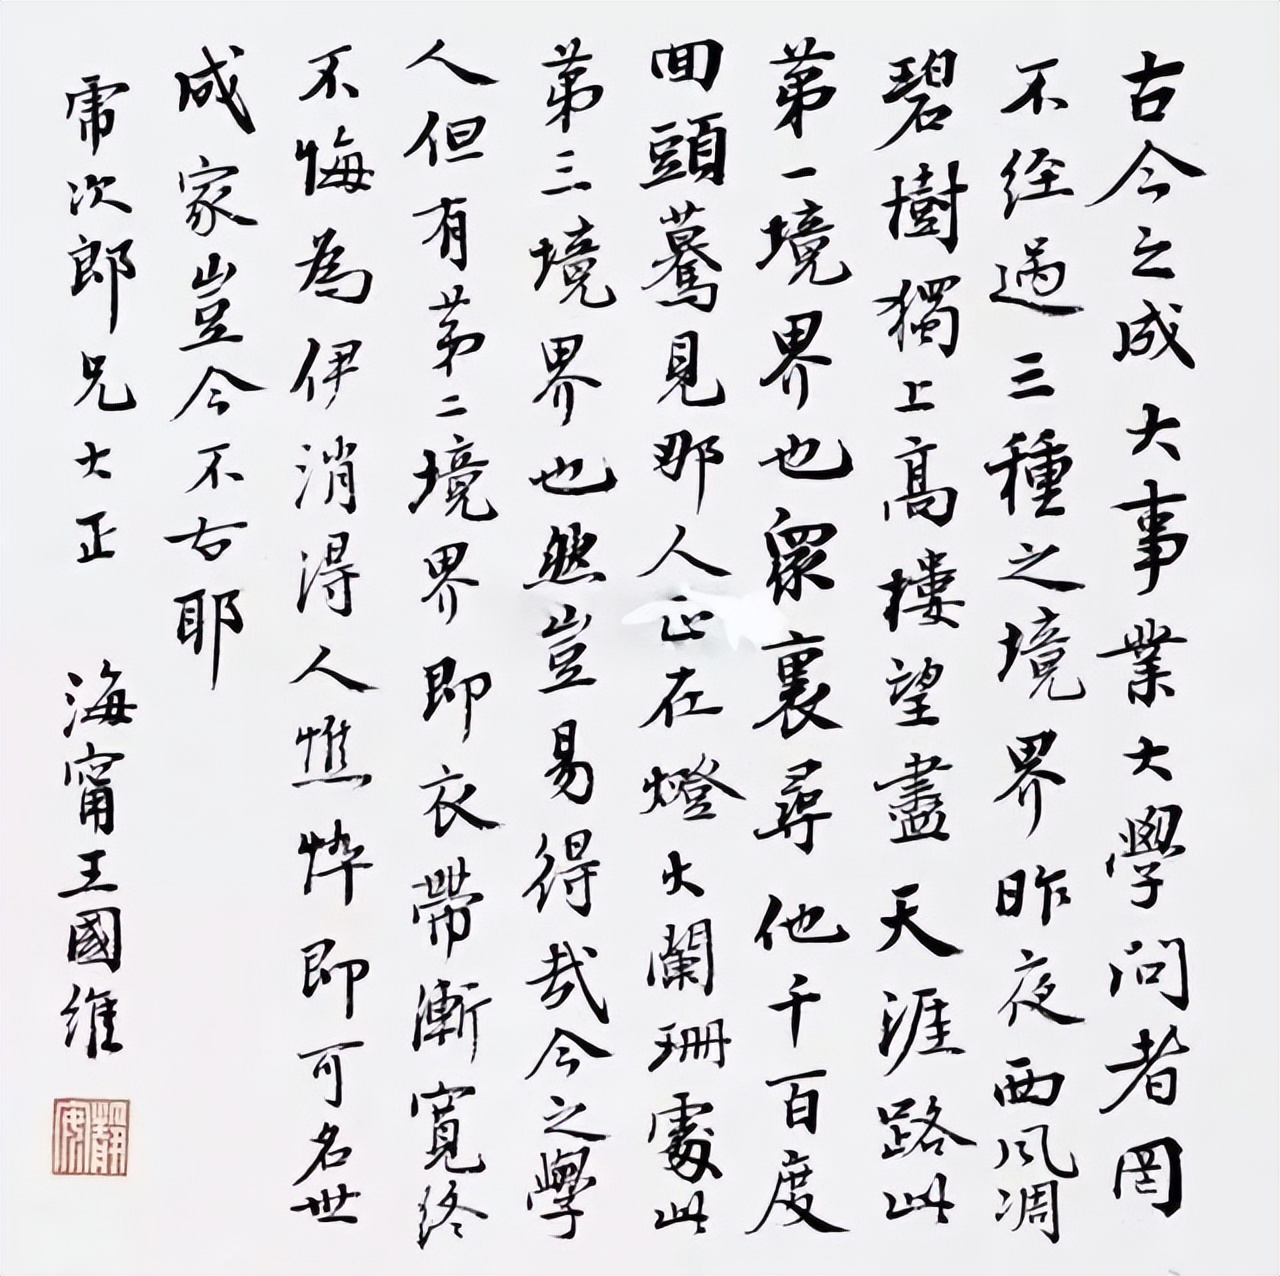 古今之成大事業大學問者罔
不经過三種之境界昨夜西风凋
碧樹獨上髙樓望盡天涯路此
第一境界也衆裏尋他千百度
回頭驀見那人正在燈火闌珊處此
第三境界也然豈易得哉今之學
人但有第二境界即衣帶漸寬终
不悔為伊消得人憔悴即可名世
成家豈今不古耶
次郎兄大正
海甯王國維
靜安